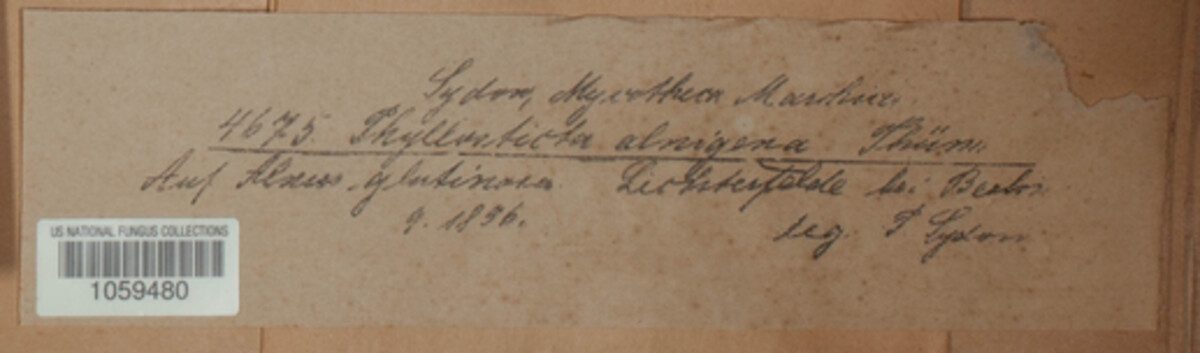 Sydow, Mycotheca Marchica.
4675. Phyllosticta alnigena Thüm.
Auf Alnus glutinosa. Lichterfelde bei Berlin
9. 1896.
leg. P Sydow
US NATIONAL FUNGUS COLLECTIONS
1059480